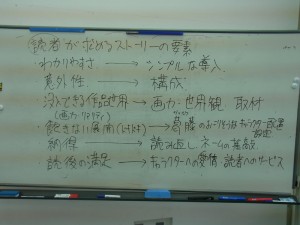 読者が求めるストーリーの要素
・わかりやすさ → シンプルな導入
・意外性 → 構成
・浸できる作品世界 → 画力・世界観 取材
(画力・リアリティ)
・飽きない展開 → 葛藤のおこりうるキャラクター配置
設定
・納得 → 読み返し ネームの基礎
・読後の満足 → キャラクターへの愛情 読者へのサービス